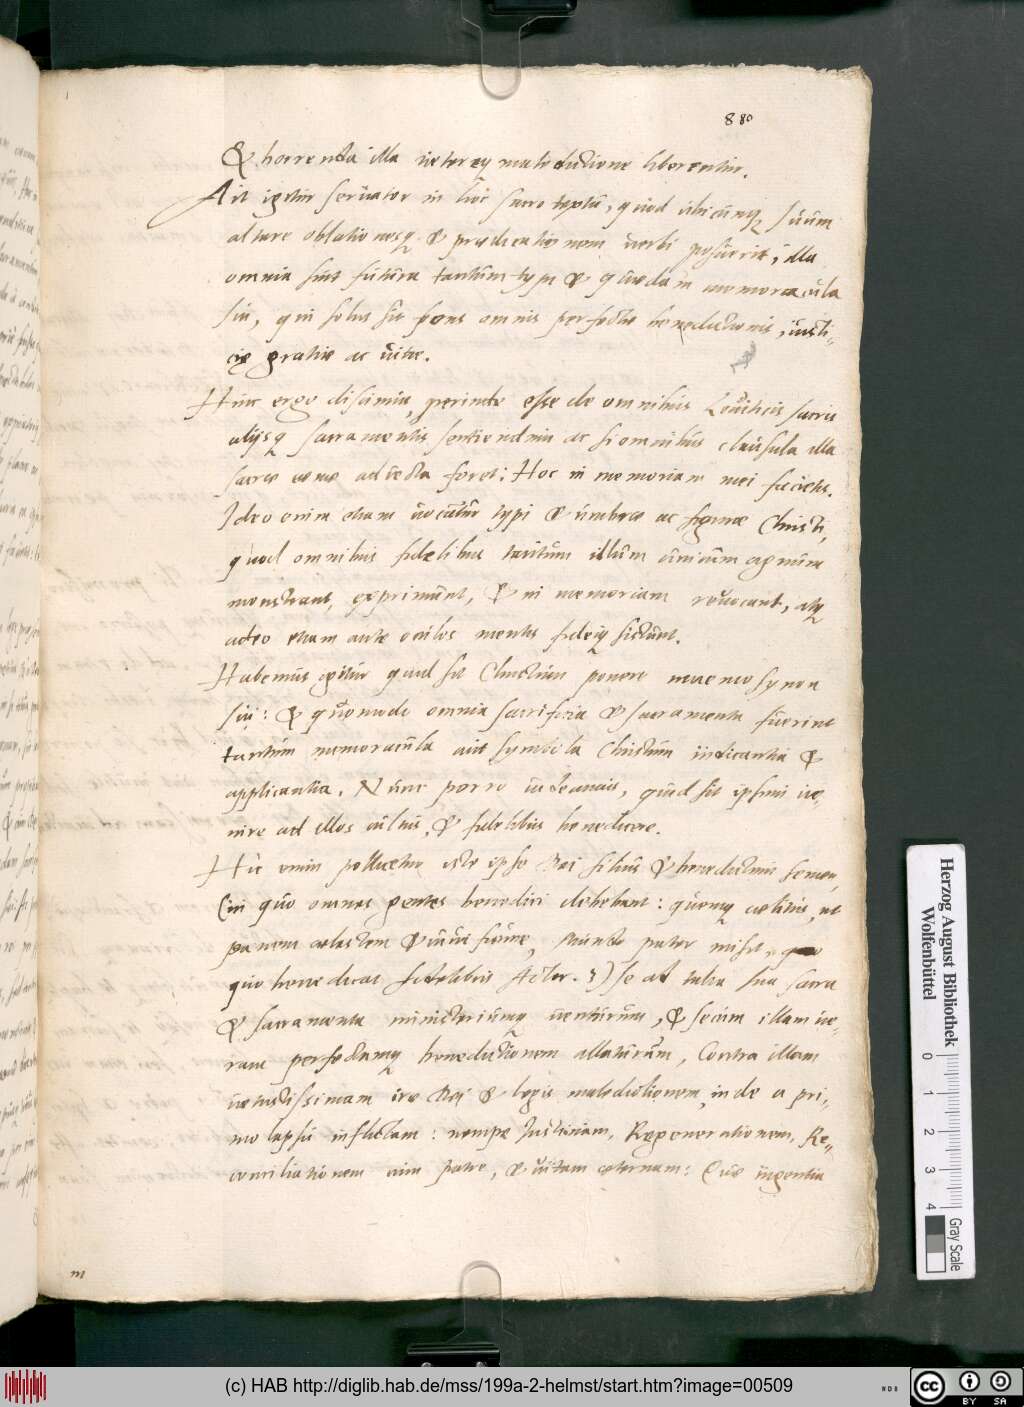 880
& horrenda illa uetereq maledictione liberentur.
Ait igitur seruator in hoc sacro textu, quod ubicunq suum
altare oblationesq & praedicationem uerbi posuerit, illa
omnia sint futura tantum typi & quaedam memoracula
sui, qui solus sit fons omnis perfectae benedictionis, iusti-
ciae gratiae ac uitae.
Hinc ergo discimus, perinde esse de omnibus Leuiticis sacris
alijsq sacramentis sentiendum ac si omnibus clausula illa
sacrae coenae adiecta foret: Hoc in memoriam mei facietis.
Ideo enim etiam uocantur typi & umbrae ac figurae Christi,
quod omnibus fidelibus tantum illum unicum agnum
monstrant, exprimunt, & in memoriam reuocant, atq
adeo etiam ante oculos mentis fideiq sistunt.
Habemus igitur quid sit Christum ponere mnemosynon
sui: & quomodo omnia sacrificia & sacramenta fuerint
tantum memoracula aut symbola Christum indicantia &
applicantia. Nunc porro uideamus, quid sit ipsum ue-
nire ad illos cultus, & fidelibus benedicere.
Hic enim pollicetur iste ipse Dei filius & benedictum semen,
(in quo omnes gentes benedici debebant: quemq coelitus, ut
panem coelestem & uiuificum, mundo pater misit,
quo benedicat fidelibus Actor. 3) se ad talia sua sacra
& sacramenta ministeriumq uenturum, & secum illam ue-
ram perfectamq benedictionem allaturum, Contra illam
uetustissimam irae Dei & legis maledictionem, inde a pri-
mo lapsu inflictam: nempe Iustitiam, Regenerationem, Re-
conciliationem cum patre, & uitam aeternam: Quae ingentia
m
Herzog August Bibliothek
Wolfenbüttel
0 1 2 3 4
Gray Scale
(c) HAB http://diglib.hab.de/mss/199a-2-helmst/start.htm?image=00509
cc BY SA